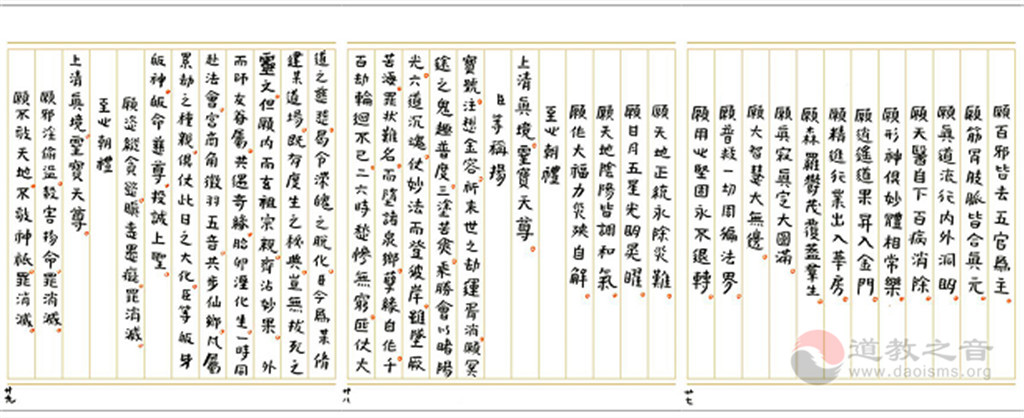 願百邪皆去五官爲主
願筋骨肢脈皆合眞元
願眞道流行內外洞明
願天醫自下百病消除
願形神俱妙體相常樂
願逍遙道果昇入金門
願精進行業出入華房
願森羅鬱茂覆蓋羣生
願眞寂眞空大圓滿
願大智慧大無邊
願普救一切周徧法界
願用心堅固永不退轉
廿七
願天地正統永除災難
願日月五星光明晃曜
願天地陰陽皆調和氣
願作大福力災殃自解
至心朝禮
上清眞境靈寶天尊
臣等稱揚
寶號注想金容祈來世之劫運胥消願冥
途之鬼趣普度三塗苦衆乘勝會以睹陽
光六道沉魂仗妙法而登彼岸雖墜厥
苦海罪狀難名而墮諸泉鄉孽緣自作千
百劫輪迴不已二六時愁慘無窮匪仗大
廿八
道之慈悲曷令深魄之脫化日今爲某脩
建某道場旣有度生之秘典豈無拔死之
靈文但願內而玄祖宗親齊沾妙果 外
而師友眷屬共遇奇緣胎卵溼化生一時同
赴法會宮商角徵羽五音共步仙鄉凡屬
累劫之種親俱仗此日之大化臣等皈身
皈神皈命慈尊投誠上聖
願恣縱貪慾瞋恚愚癡罪消滅
至心朝禮
上清眞境靈寶天尊
願邪淫偷盜殺害物命罪消滅
願不敬天地不敬神祇罪消滅
廿九
道教之音
www.daoisms.org